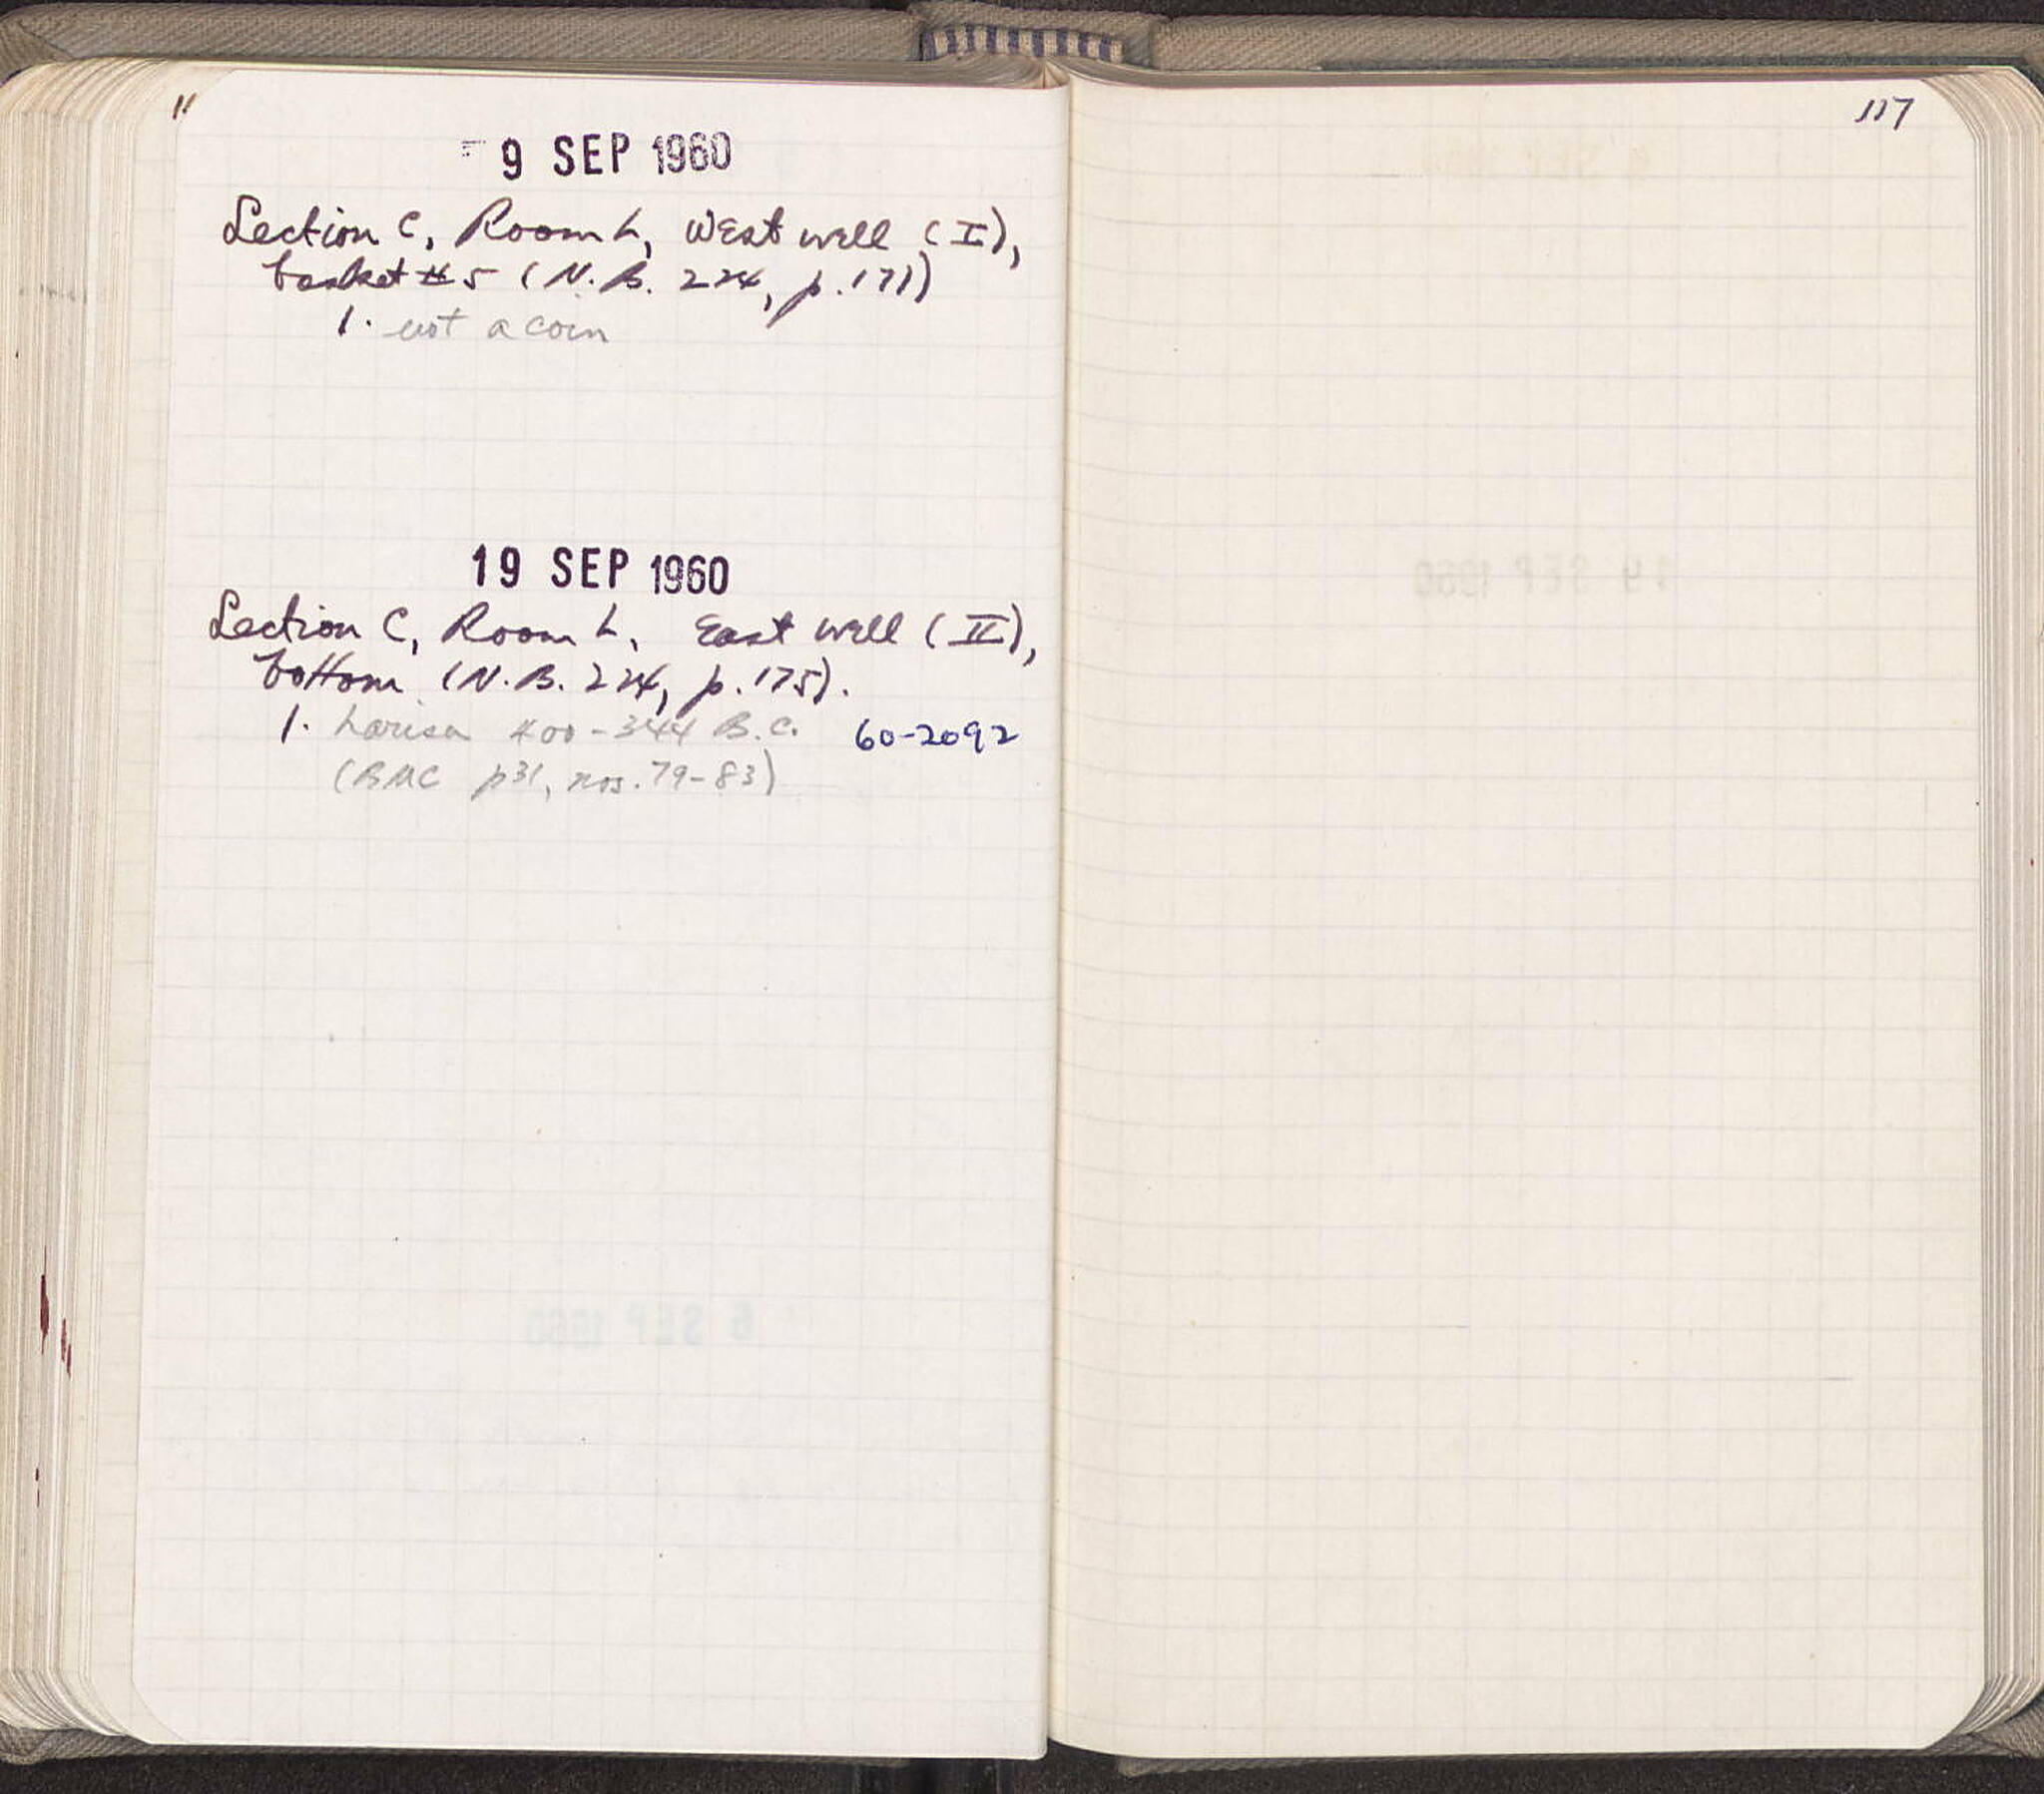 9 SEP 1960
Section C, Room L, West well (I),
basket #5 (N.B. 224, p.171)
1. not a coin
19 SEP 1960
Section C, Room L, East well (II),
bottom (N.B. 224, p.175).
1. Larisa 400-344 B.C. 60-2092
(BMC p31, nos. 79-83)
117
19 SEP 1960
6 SEP 1960